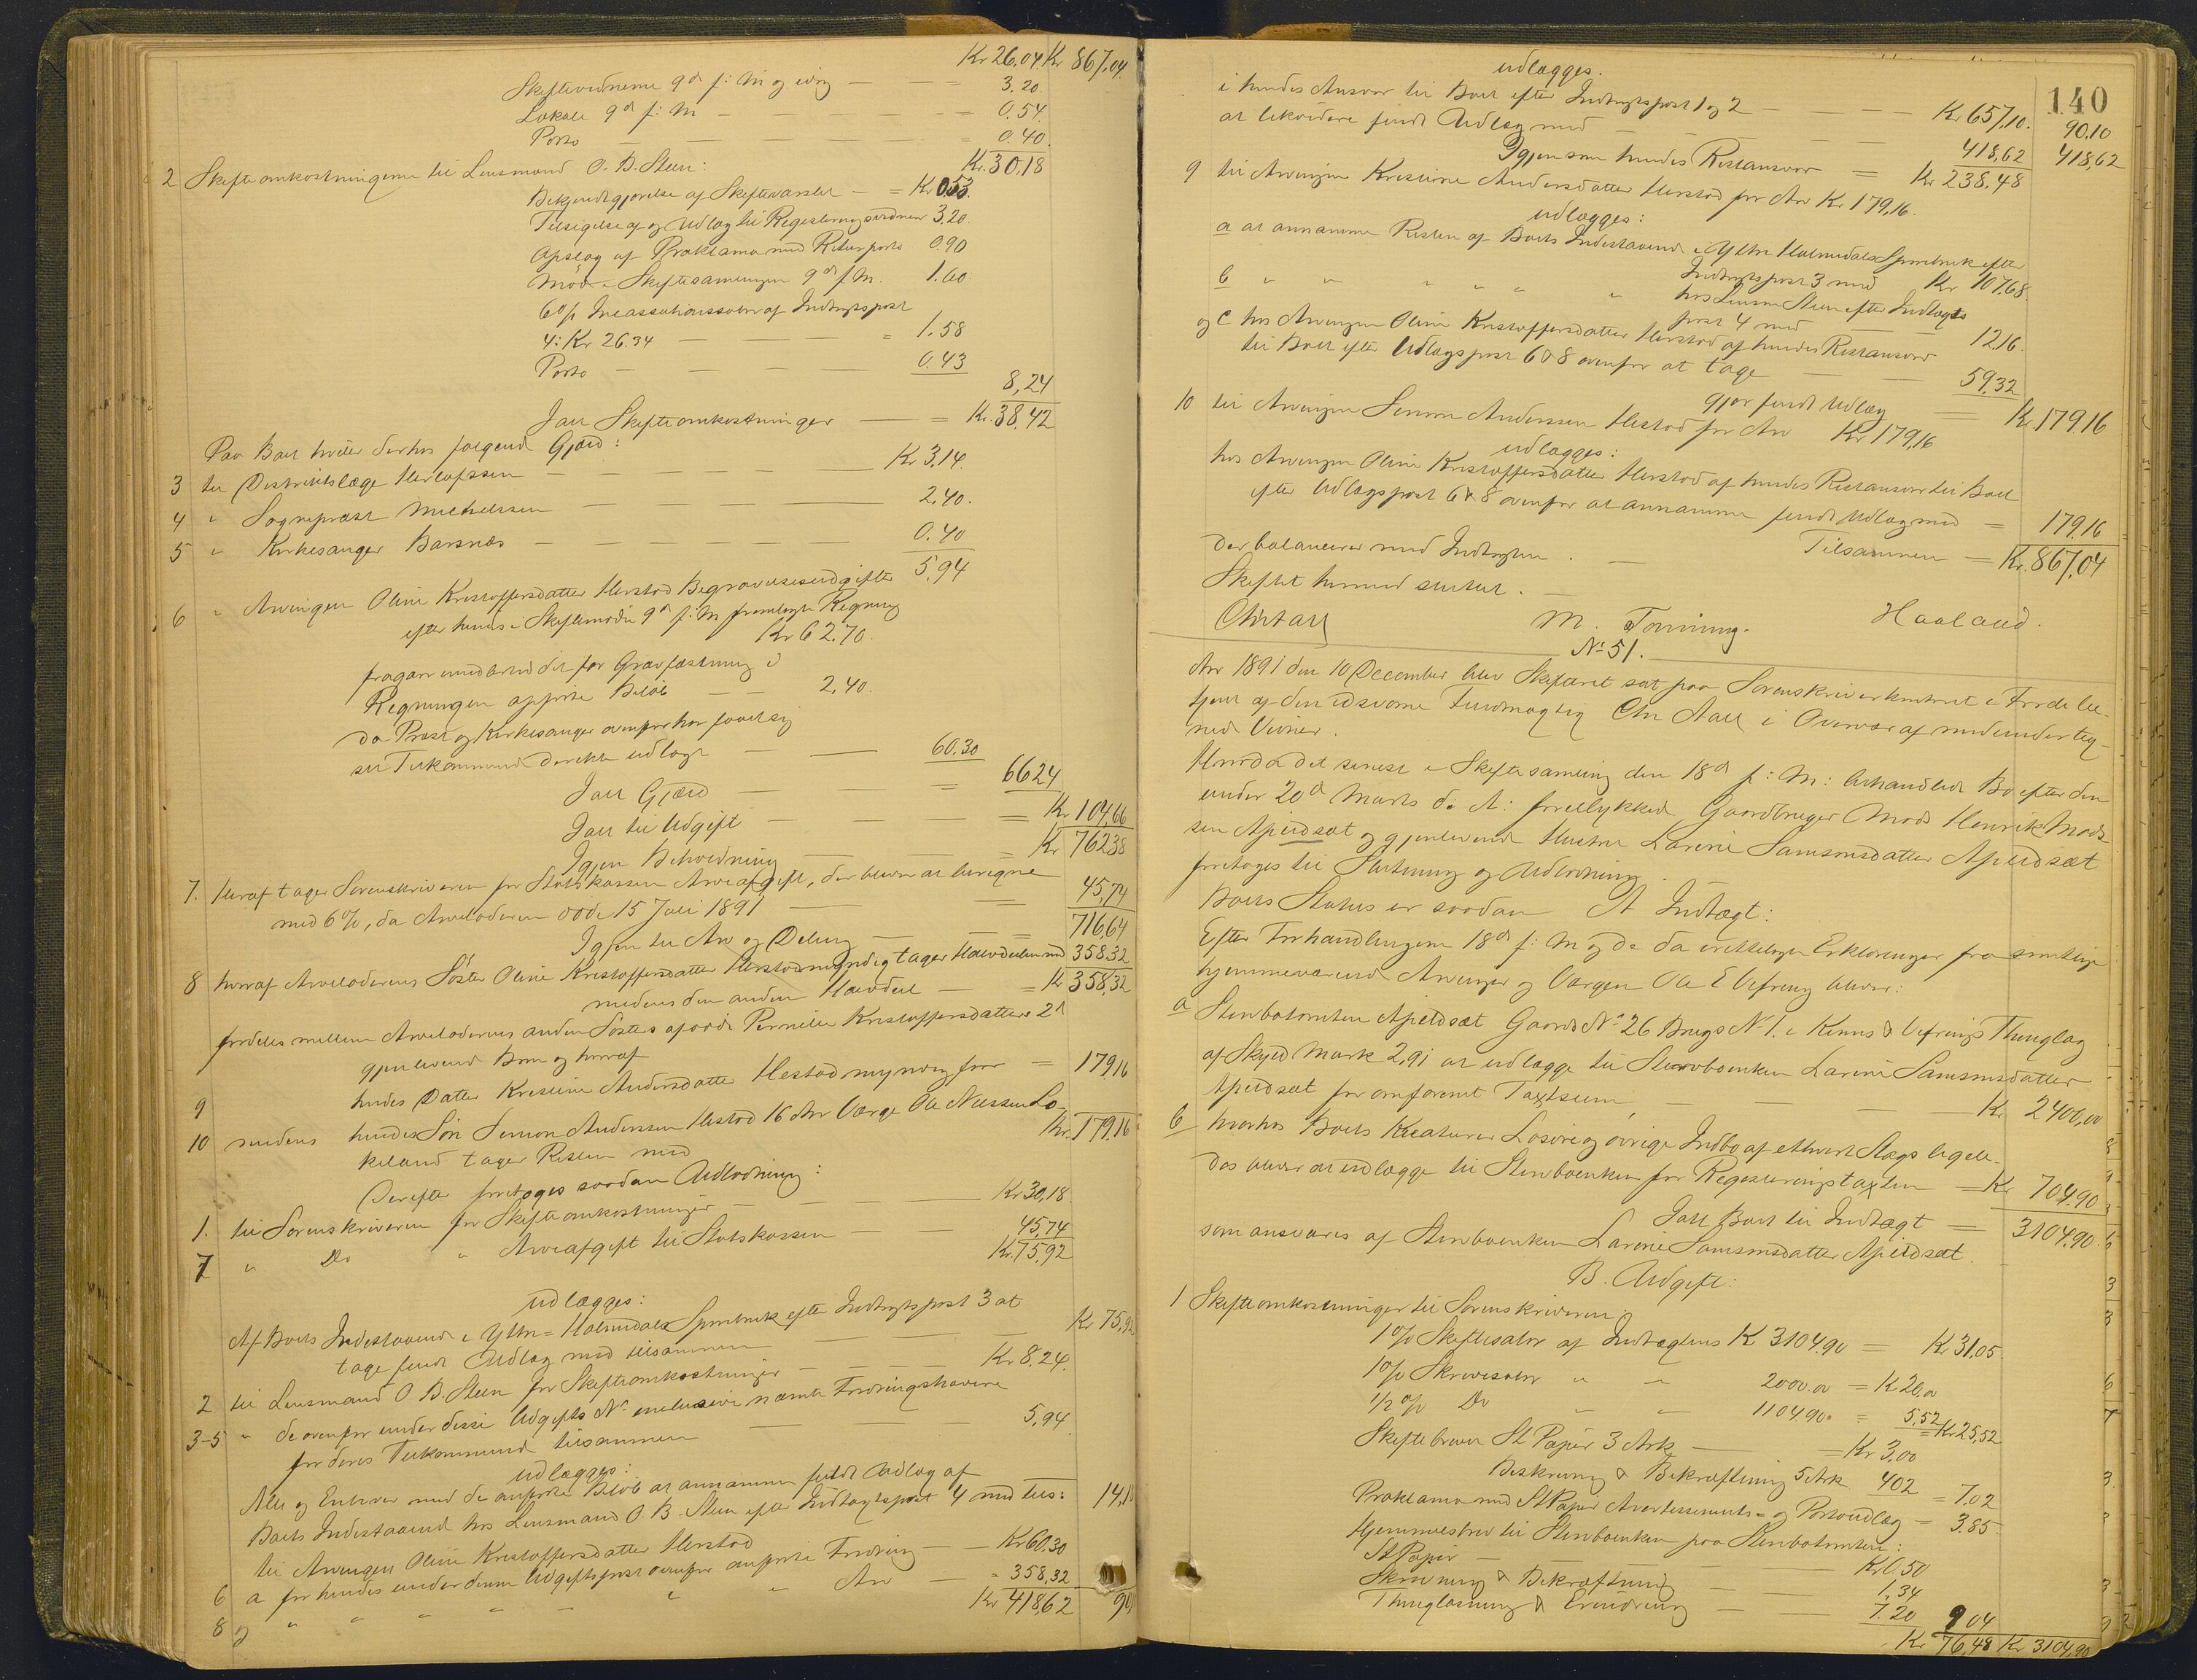 Kr 26,04 Kr 867,04
Skiftevidnerne 9d f: M og idag — — = 3.20
Lokale 9d f: M — — — — - = 0.54.
Porto — — — — = 0.40.
Kr. 30,18
2 Skifteomkostningerne til Lensmand O. B. Steen:
Bekjendtgjørelse af Skiftevarslet — = Kr 0.53.
Tilsigelse af og Udlæg til Registreringsvidnerne 3,20.
Opslag af Proklama med Returporto 0.90
Møde i Skiftesamlingen 9d f. M. 1.60.
6 o/o Incassationssalær af Indtægtspost
4: Kr 26.34 — — — = 1.58
Porto — — — — 0.43
8,24
Ialt Skifteomkostninger — = Kr. 38,42
Paa Boet hviler derhos følgende Gjæld:
3 til Distriktslæge Herlofssen — — — — Kr 3,14.
4 " Sogneprest Michelssen — — — — 2,40.
5 " Kirkesanger Barsnæs — — — — 0.40
5,94
6 " Arvingen Oline Kristoffersdatter Herstad Begravelsesudgifter
efter hendes i Skiftemøde 9d f: M fremlagte Regning
Kr 62.70.
fragaar imidlertid det for Gravfæstning i
Regningen opførte Beløb — — 2,40.
da Prest og Kirkesanger ovenfor har faaet sig
sit Tilkommende direkte udlagt — — 60.30
66 24
Ialt Gjæld — — — =
Ialt til Udgift — — — = Kr 104,66
Igjen Beholdning — — = Kr 762,38
7. Heraf tager Sorenskriveren for Statskassen Arveafgift, der bliver at beregne
med 6 %, da Arveladeren døde 15 Juli 1891 — — = 45,74
Igjen til Arv og Deling — — = 716,64
8 hvoraf Arveladerens Søster Oline Kristoffersdatter Herstad myndig tager Halvdelen med 358,32
medens den anden Halvdel — = Kr 358,32
fordeles mellem Arveladerens anden Søsters afdøde Pernille Kristoffersdatters 2d
gjenlevende Børn og hvoraf
9 hendes Datter Kristine Andersdatter Hestad myndig faar = 179,16
10 medens hendes Søn Simon Anderssen Hestad 16 Aar Værge Ole Nilssen Lo-
keland tager Resten med Kr. 179,16
Derefter foretages saadan Udlodning:
1. til Sorenskriveren for Skifteomkostninger — — — Kr 30,18.
7 " Do " Arveafgift til Statskassen — 45,74
Kr. 75,92
udlægges:
Af Boets Indestaaende i Ytre-Holmedals Sparebank efter Indtægtspost 3 at
tage fuldt Udlæg med tilsammen — — Kr 75,92
2 til Lensmand O B. Steen for Skifteomkostninger — — — Kr 8.24.
3-5 " de ovenfor under disse Udgifts No inclusive nævnte Fordringshavere
for deres Tilkommende tilsammen — — — 5,94.
udlægges:
Alle og Enhver med de anførte Beløb at annamme fuldt Udlæg af
Boets Indestaaende hos Lensmand O. B. Steen efter Indtægtspost 4 med tils: 14,1
til Arvingen Oline Kristoffersdatter Herstad
6 a for hendes under denne Udgiftspost ovenfor anførte Fordring — — Kr 60,30
8 og " " " " " " Arv — " 358,32
Kr 418,62 90,
140
udlægges.
i hendes Ansvar til Boet efter Indtægtspost 1 og 2 — — — Kr 657,10. 90,10
at likvidere fuldt Udlæg med — — — — 418,62 418,62
Igjen som hendes Restansvar = Kr 238,48
9 til Arvingen Kristine Andersdatter Herstad for Arv Kr 179,16.
udlægges:
a at annamme Resten af Boets Indestaaende i Ytre Holmedals Sparebank efter
Indtægtspost 3 med Kr 107,68.
b " " " " " " hos Lensm Steen efter Indtægts
post 4 med — — 12,16.
og c hos Arvingen Oline Kristoffersdatter Herstad af hendes Restansvar
til Boet efter Udlægspost 6 & 8 ovenfor at tage — — 59,32
gjør fuldt Udlæg — = Kr. 179,16
10 til Arvingen Simon Anderssen Hestad for Arv Kr 179,16
udlægges:
hos Arvingen Oline Kristoffersdatter Herstad af hendes Restansvar til Boet
efter Udlægspost 6 & 8 ovenfor at annamme fuldt Udlæg med = 179,16
Tilsammen = Kr. 867,04
der balancerer med Indtægten. —
Skiftet hermed sluttet. —
Chr Aall M. Tonning. Haaland.
No 51.
Aar 1891 den 10 December blev Skifteret sat paa Sorenskriverkontoret i Førde be-
tjent af den edsvorne Fuldmægtig Chr Aall i Overvær af medunderteg-
nede Vidner.
Hvorda det senest i Skiftesamling den 18d f: M: behandlede Bo efter den
under 20d Marts d. A: forulykkede Gaardbruger Mads Henrik Mads-
sen Apeldsæt og gjenlevende Hustru Larine Samsonsdatter Apeldsæt
foretoges til Slutning og Udlodning. —
Boets Status er saadan A Indtægt:
Efter Forhandlingerne 18d f: M og de da meddelte Erklæringer fra samtlige
hjemmeværende Arvinger og Værgen Ole E Vefring bliver:
a Stervbotomten Apeldsæt Gaards No 26 Brugs No 1. i Kinns & Vefrings Thinglag
af Skyld Mark 2,91 at udlægge til Stervboenken Larine Samsonsdatter
Apeldsæt for omforenet Taxtsum — — — Kr. 2400,00
b hvorhos Boets Kreaturer Løsøre og øvrige Indbo af ethvert Slags ligele-
des bliver at udlægge til Stervboenken for Registreringstaxten = Kr 704.90
Ialt Boet til Indtægt = 3104,90.
som ansvares af Stervboenken Larine Samsonsdatter Apeldsæt.
B. Udgift:
1 Skifteomkostninger til Sorenskriveren:
1 o/o Skiftesalær af Indtægtens Kr 3104,90 = Kr 31,05.
1 o/o Skriversalær " " 2000.00 = Kr 20,00
1/2 o/o Do " " 1104,90 = 5,52 = Kr 25,52
Skiftebrevet St Papir 3 Ark — = Kr 3,00
Beskrivning & Bekræftning 5 Ark 402 = 7,02
Proklama med St Papir Avertissements- og Portoudlæg = 3.85.
Hjemmelsbrev til Stervboenken paa Stervbotomten:
St Papir — Kr 0,50
Skrivning & Bekræftning — — 1,34
Thinglæsning & Erindring — — 7.20 9 04
Kr 76,48 Kr 3104,90